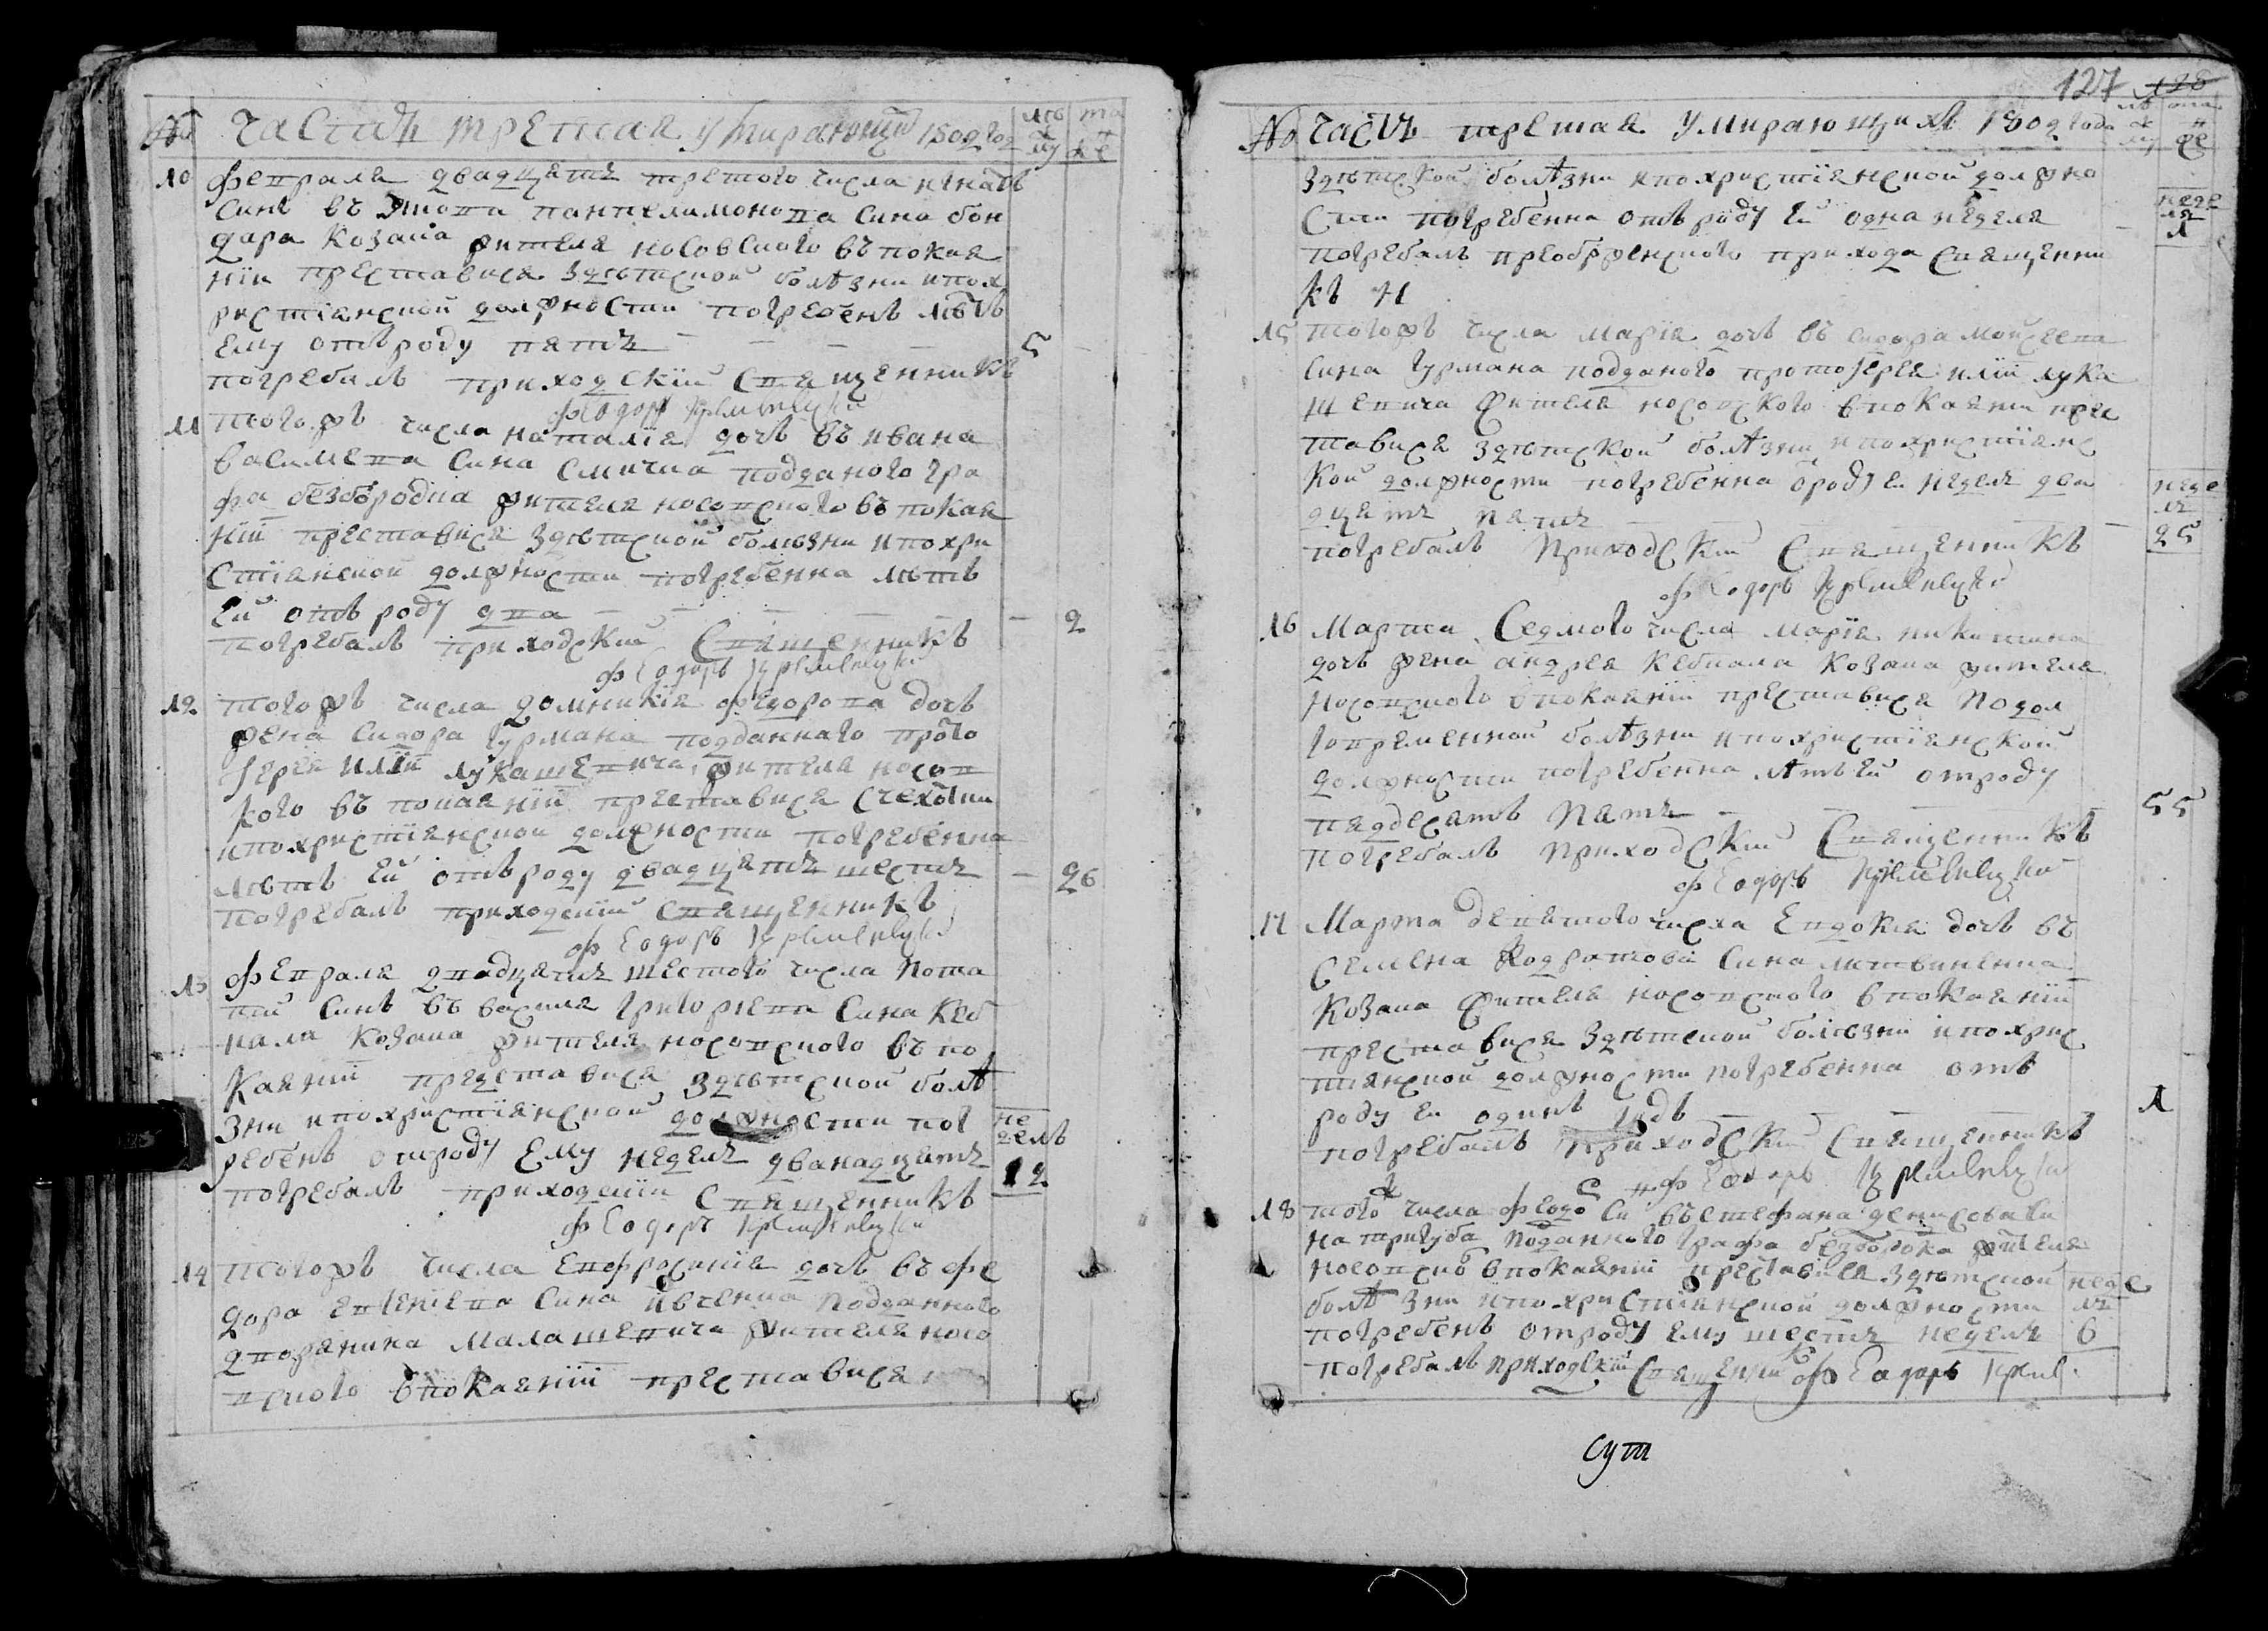 № Часть третая умирающих 1802 год
лѣ та
му же
10 февраля двадцять третого числа игнатъ
синъ въ пантелимонова сина бон
дара козака жителя носовского въ покая
нїи преставися здѣтской болѣзни и пох
ристїянской должности погребенъ лѣтъ
ему отъ роду пять — — — 5
погребалъ приходскїй священникъ
феодоръ
11 тогожъ числа наталїя дочъ въ ивана
сина смичка подданого гра
фа безбородка жителя носовского въ покая
нїи преставися здѣтской болѣзни и похри
стїянской должности погребенна лѣтъ
ей отъ роду два — — — 2
погребалъ приходский священникъ
феодоръ
12 тогожъ числа домникїя федорова дочъ
жена сидора гурмана подданнаго прото
їерея илїи лукашевича жителя носов
кого въ покаянїи преставися с
и похристїянской должности погребенна
лѣтъ ей отъ роду двадцять шесть — 26
погребалъ приходскїй священникъ
феодоръ
13 февраля двадцять шестого числа пота
пїй синъ въ василя григориева сина кеб
кала козака жителя носовского въ по
каянїи преставися здѣтской болѣ
зни и похристїянской должности пог
ребенъ отроду ему недель дванадцять
не
дель
12
погребалъ приходскїи священникъ
феодоръ
14 тогожъ числа евфросинїя дочъ въ фе
дора евгениева сина ївченка подданного
дворянина малашевича жителя носо
вского впокаянїи преставися
127 128
№ часть третая умирающихъ 1802 года
здѣтской болѣзни и похристїянской должно
сти погребенна отъ роду ей одна неделя
неде
ля
1
погребалъ преображенского прихода священни
къ И
15 тогожъ числа марїя дочъ въ сидора мойсеева
сина гурмана подданого протоїерея илїи лука
шевича жителя носовского впокаянии прес
тавися здѣтской болѣзни и похристїянс
кой должности погребенна ороду ей недель два
дцять пять
неде
ль
25
погребалъ приходский священникъ
феодоръ
16 Марта седмого числа марїя никитина
дочъ жена андрея кебкала козака жителя
носовского впокаянїи преставися по дол
говременной болѣзни и похристїянской
должности погребенна лѣтъ ей отроду
пядесятъ пять — 55
погребалъ приходский священникъ
феодоръ
17 Марта девятого числа евдокия дочъ въ
семена кодратова сина литвиненка
козака жителя носовского впокаянїи
преставися здѣтской болѣзни и похрис
тиянской должности погребенна отъ
роду ей одинъ годъ — 1
погребалъ приходский священникъ
феодоръ
18 того ж числа феодо с си н въ стефана денисова си
на тригуба поданного графа безбородка жителя
носовско впокаянїи преставися здѣтской
болѣзни и похристїянской должности
погребенъ отроду ему шесть недель
неде
ль
6
погребалъ приходскїй священникъ феодоръ
сут